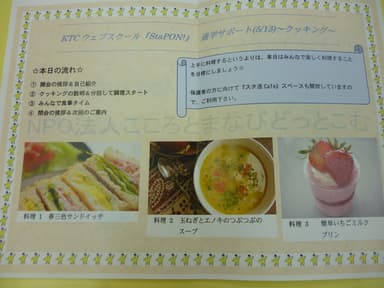 KTCウェブスクール「StaPON!」 通学サポート(5/13)～クッキング～
☆本日の流れ☆
① 開会の挨拶&自己紹介
② クッキングの説明&分担して調理スタート
③ みんなで食事タイム
④ 閉会の挨拶&次回のご案内
上手に料理するというよりは、本日はみんなで楽しく料理すること
を目標にしましょう☆
保護者の方に向けて『スタ活 Cafe』スペースも開放していますの
で、ご利用下さい。
NPO法人こころとまなびどっとこむ
料理 1 春三色サンドイッチ
料理 2 玉ねぎとエノキのつぶつぶの
スープ
料理 3 簡単いちごミルク
プリン